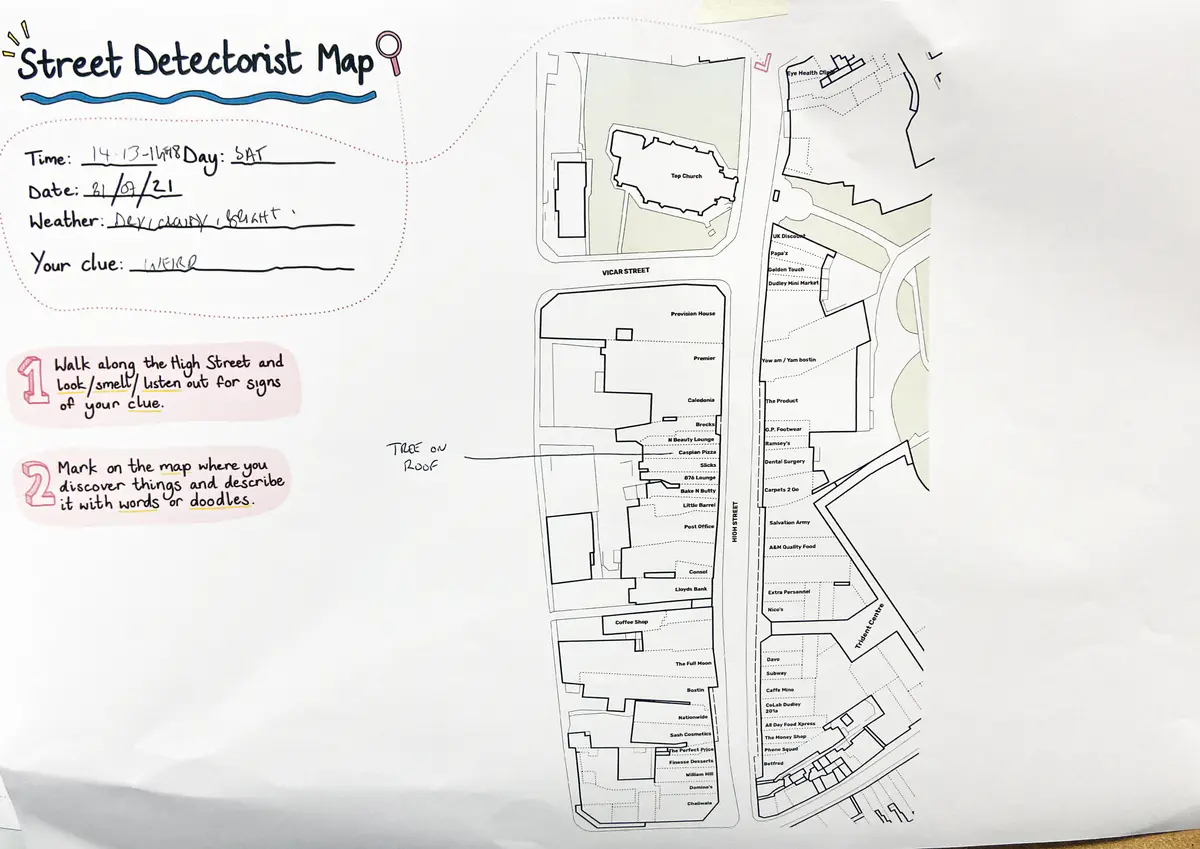 Street Detectorist Map
Time: 14.13-14.18 Day: SAT
Date: 31/07/21
Weather: DRY, CLOUDY, BRIGHT.
Your clue: WEIRD
1 Walk along the High Street and
look/smell/listen out for signs
of your clue.
2 Mark on the map where you
discover things and describe
it with words or doodles.
TREE ON
ROOF
Top Church
VICAR STREET
Provision House
Premier
Caledonia
Brecks
N Beauty Lounge
Caspian Pizza
Slicks
876 Lounge
Bake N Butty
Little Barrel
Post Office
Consol
Lloyds Bank
Coffee Shop
The Full Moon
Bostin
Nationwide
Sash Cosmetics
The Perfect Price
Finesse Desserts
William Hill
Domino's
Chaiiwala
HIGH STREET
Eye Health Clinic
UK Discount
Papa's
Golden Touch
Dudley Mini Market
Yow am / Yam bostin
The Product
G.P. Footwear
Ramsey's
Dental Surgery
Carpets 2 Go
Salvation Army
A&M Quality Food
Extra Personnel
Nico's
Trident Centre
Dave
Subway
Caffe Mino
CoLab Dudley
201a
All Day Food Xpress
The Money Shop
Phone Squad
Betfred